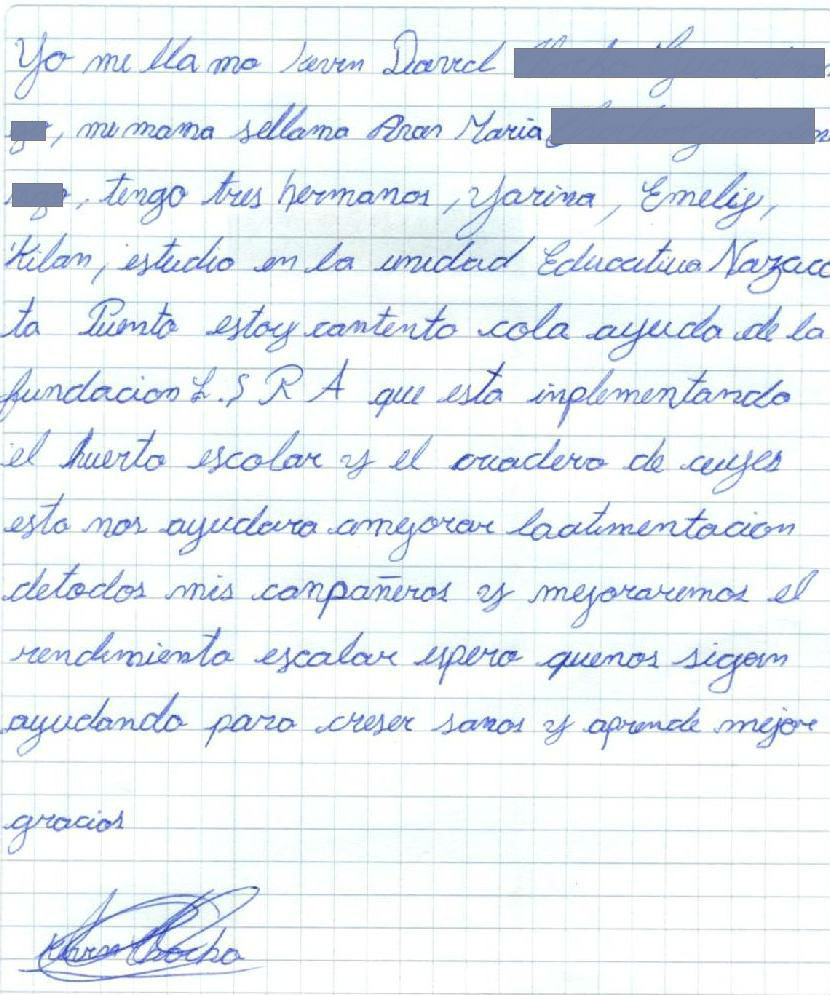 Yo me llamo kevin David
, mi mama sellama Anan Maria
, tengo tres hermanos, Yarina, Emeliy,
Kilan, estudio en la unidad Educativa Nazaco
ta Puento estoy contento cola ayuda de la
fundacion L.S R A que esta inplementando
el huerto escolar y el criadero de cuyes
esto nos ayudara amejorar laalimentacion
detodos mis conpañeros y mejoraremos el
rendimiento escolar espero quenos sigan
ayudando para creser sanos y aprende mejor
gracias